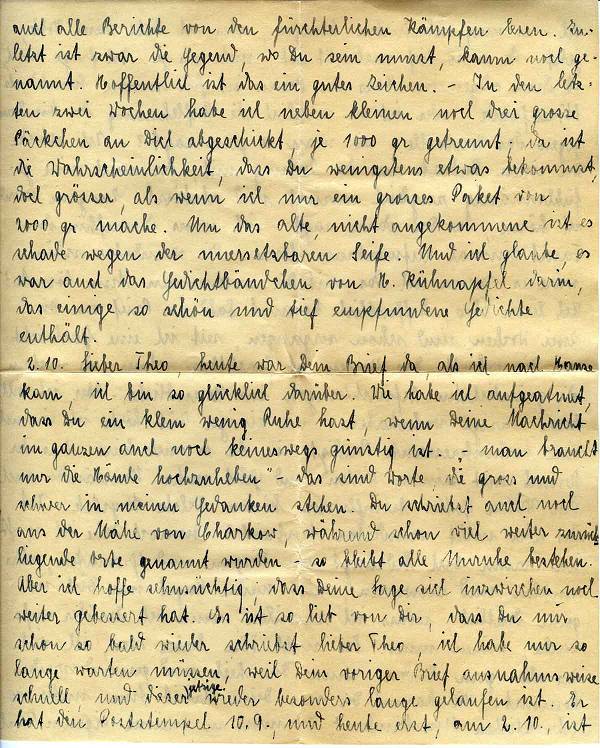 auch alle Berichte von den fürchterlichen Kämpfen lesen. Zu-
letzt ist zwar die Gegend, wo Du sein musst, kaum noch ge-
nannt. Hoffentlich ist das ein gutes Zeichen. – In den letz-
ten zwei Wochen habe ich neben kleinen noch drei grosse
Päckchen an Dich abgeschickt, je 1000 gr getrennt. da ist
die Wahrscheinlichkeit, dass Du wenigstens etwas bekommst,
doch grösser, als wenn ich nur ein grosses Paket von
2000 gr mache. Um das alte, nicht angekommene ist es
schade wegen der unersetzbaren Seife. Und ich glaube, es
war auch das Gedichtbändchen von H. Kühnapfel darin,
das einige so schön und tief empfundene Gedichte
enthält.
2.10. Lieber Theo, heute war Dein Brief da, als ich nach Hause
kam, ich bin so glücklich darüber. Wie habe ich aufgeatmet,
dass Du ein klein wenig Ruhe hast, wenn Deine Nachricht
im ganzen auch noch keineswegs günstig ist. „– man braucht
nur die Hände hochzuheben" – das sind Worte, die gross und
schwer in meinen Gedanken stehen. Du schriebst auch noch
aus der Nähe von Charkow, während schon viel weiter zurück-
liegende Orte genannt wurden – so bleibt alle Unruhe bestehen.
Aber ich hoffe sehnsüchtig, dass Deine Lage sich inzwischen noch
weiter gebessert hat. Es ist so lieb von Dir, dass Du mir
schon so bald wieder schriebst lieber Theo ich habe nur so
lange warten müssen, weil Dein voriger Brief ausnahmsweise
schnell, und dieser jetzige wieder besonders lange gelaufen ist. Er
hat den Poststempel 10.9., und heute erst, am 2.10., ist